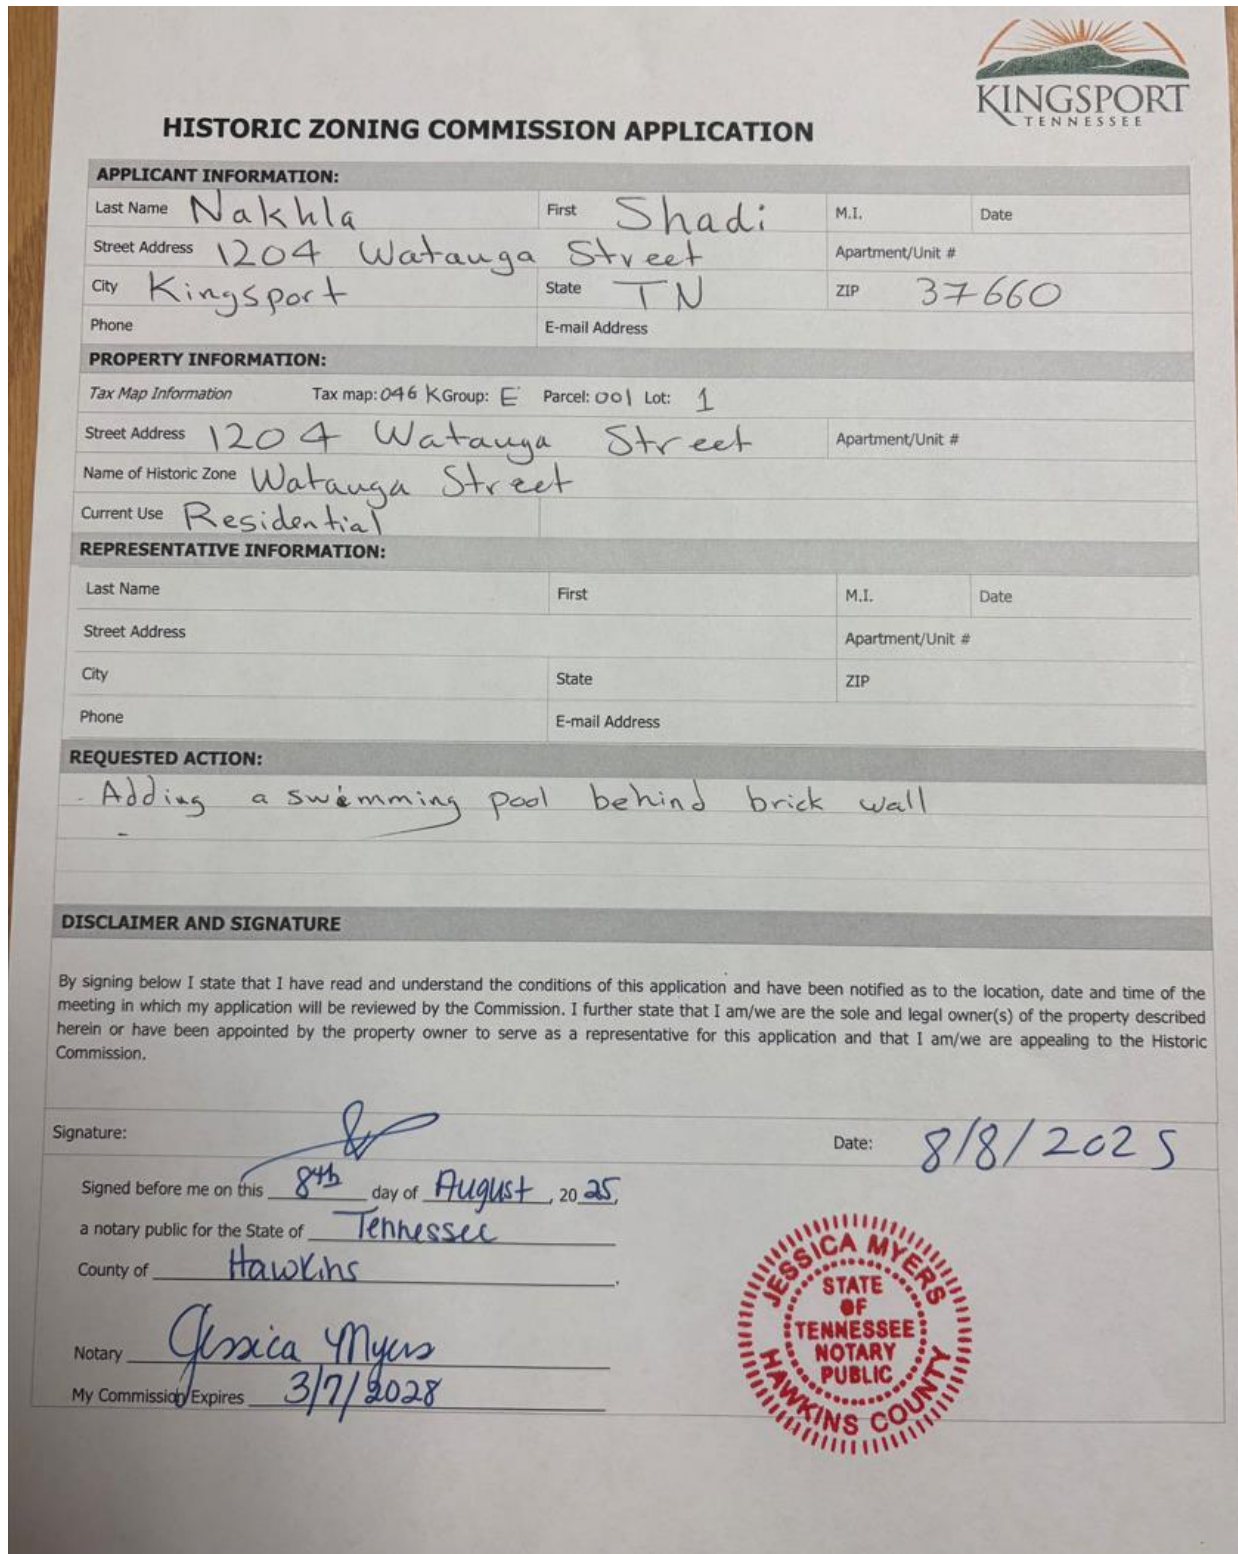 KINGSPORT
TENNESSEE
HISTORIC ZONING COMMISSION APPLICATION
APPLICANT INFORMATION:
Last Name Nakhla First Shadi M.I. Date
Street Address 1204 Watauga Street Apartment/Unit #
City Kingsport State TN ZIP 37660
Phone E-mail Address
PROPERTY INFORMATION:
Tax Map Information Tax map: 046 K Group: E Parcel: 001 Lot: 1
Street Address 1204 Watauga Street Apartment/Unit #
Name of Historic Zone Watauga Street
Current Use Residential
REPRESENTATIVE INFORMATION:
Last Name First M.I. Date
Street Address Apartment/Unit #
City State ZIP
Phone E-mail Address
REQUESTED ACTION:
- Adding a swimming pool behind brick wall
-
DISCLAIMER AND SIGNATURE
By signing below I state that I have read and understand the conditions of this application and have been notified as to the location, date and time of the
meeting in which my application will be reviewed by the Commission. I further state that I am/we are the sole and legal owner(s) of the property described
herein or have been appointed by the property owner to serve as a representative for this application and that I am/we are appealing to the Historic
Commission.
Signature: Date: 8/8/2025
Signed before me on this 8th day of August, 20 25,
a notary public for the State of Tennessee
County of Hawkins.
Notary Jessica Myers
My Commission Expires 3/7/2028
JESSICA MYERS
STATE
OF
TENNESSEE
NOTARY
PUBLIC
HAWKINS COUNTY